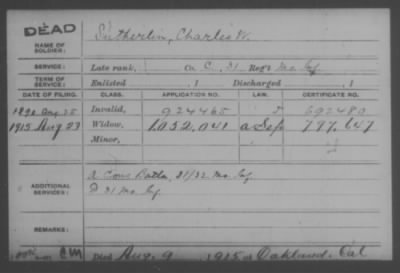 DEAD
NAME OF SOLDIER: Sutherlin, Charles W.
SERVICE: Late rank, Co. C, 31 Reg't Mo. Inf
TERM OF SERVICE: Enlisted , 1 Discharged , 1
DATE OF FILING. CLASS. APPLICATION NO. LAW. CERTIFICATE NO.
1890 Aug. 25 Invalid, 924465 692480
1915 Aug 23 Widow, 1052041 797647
Minor,
ADDITIONAL SERVICES: Cons Batln. 31/32 Mo. Inf.
31 Mo. Inf
Died Aug. 9, 1915 at Oakland, Cal